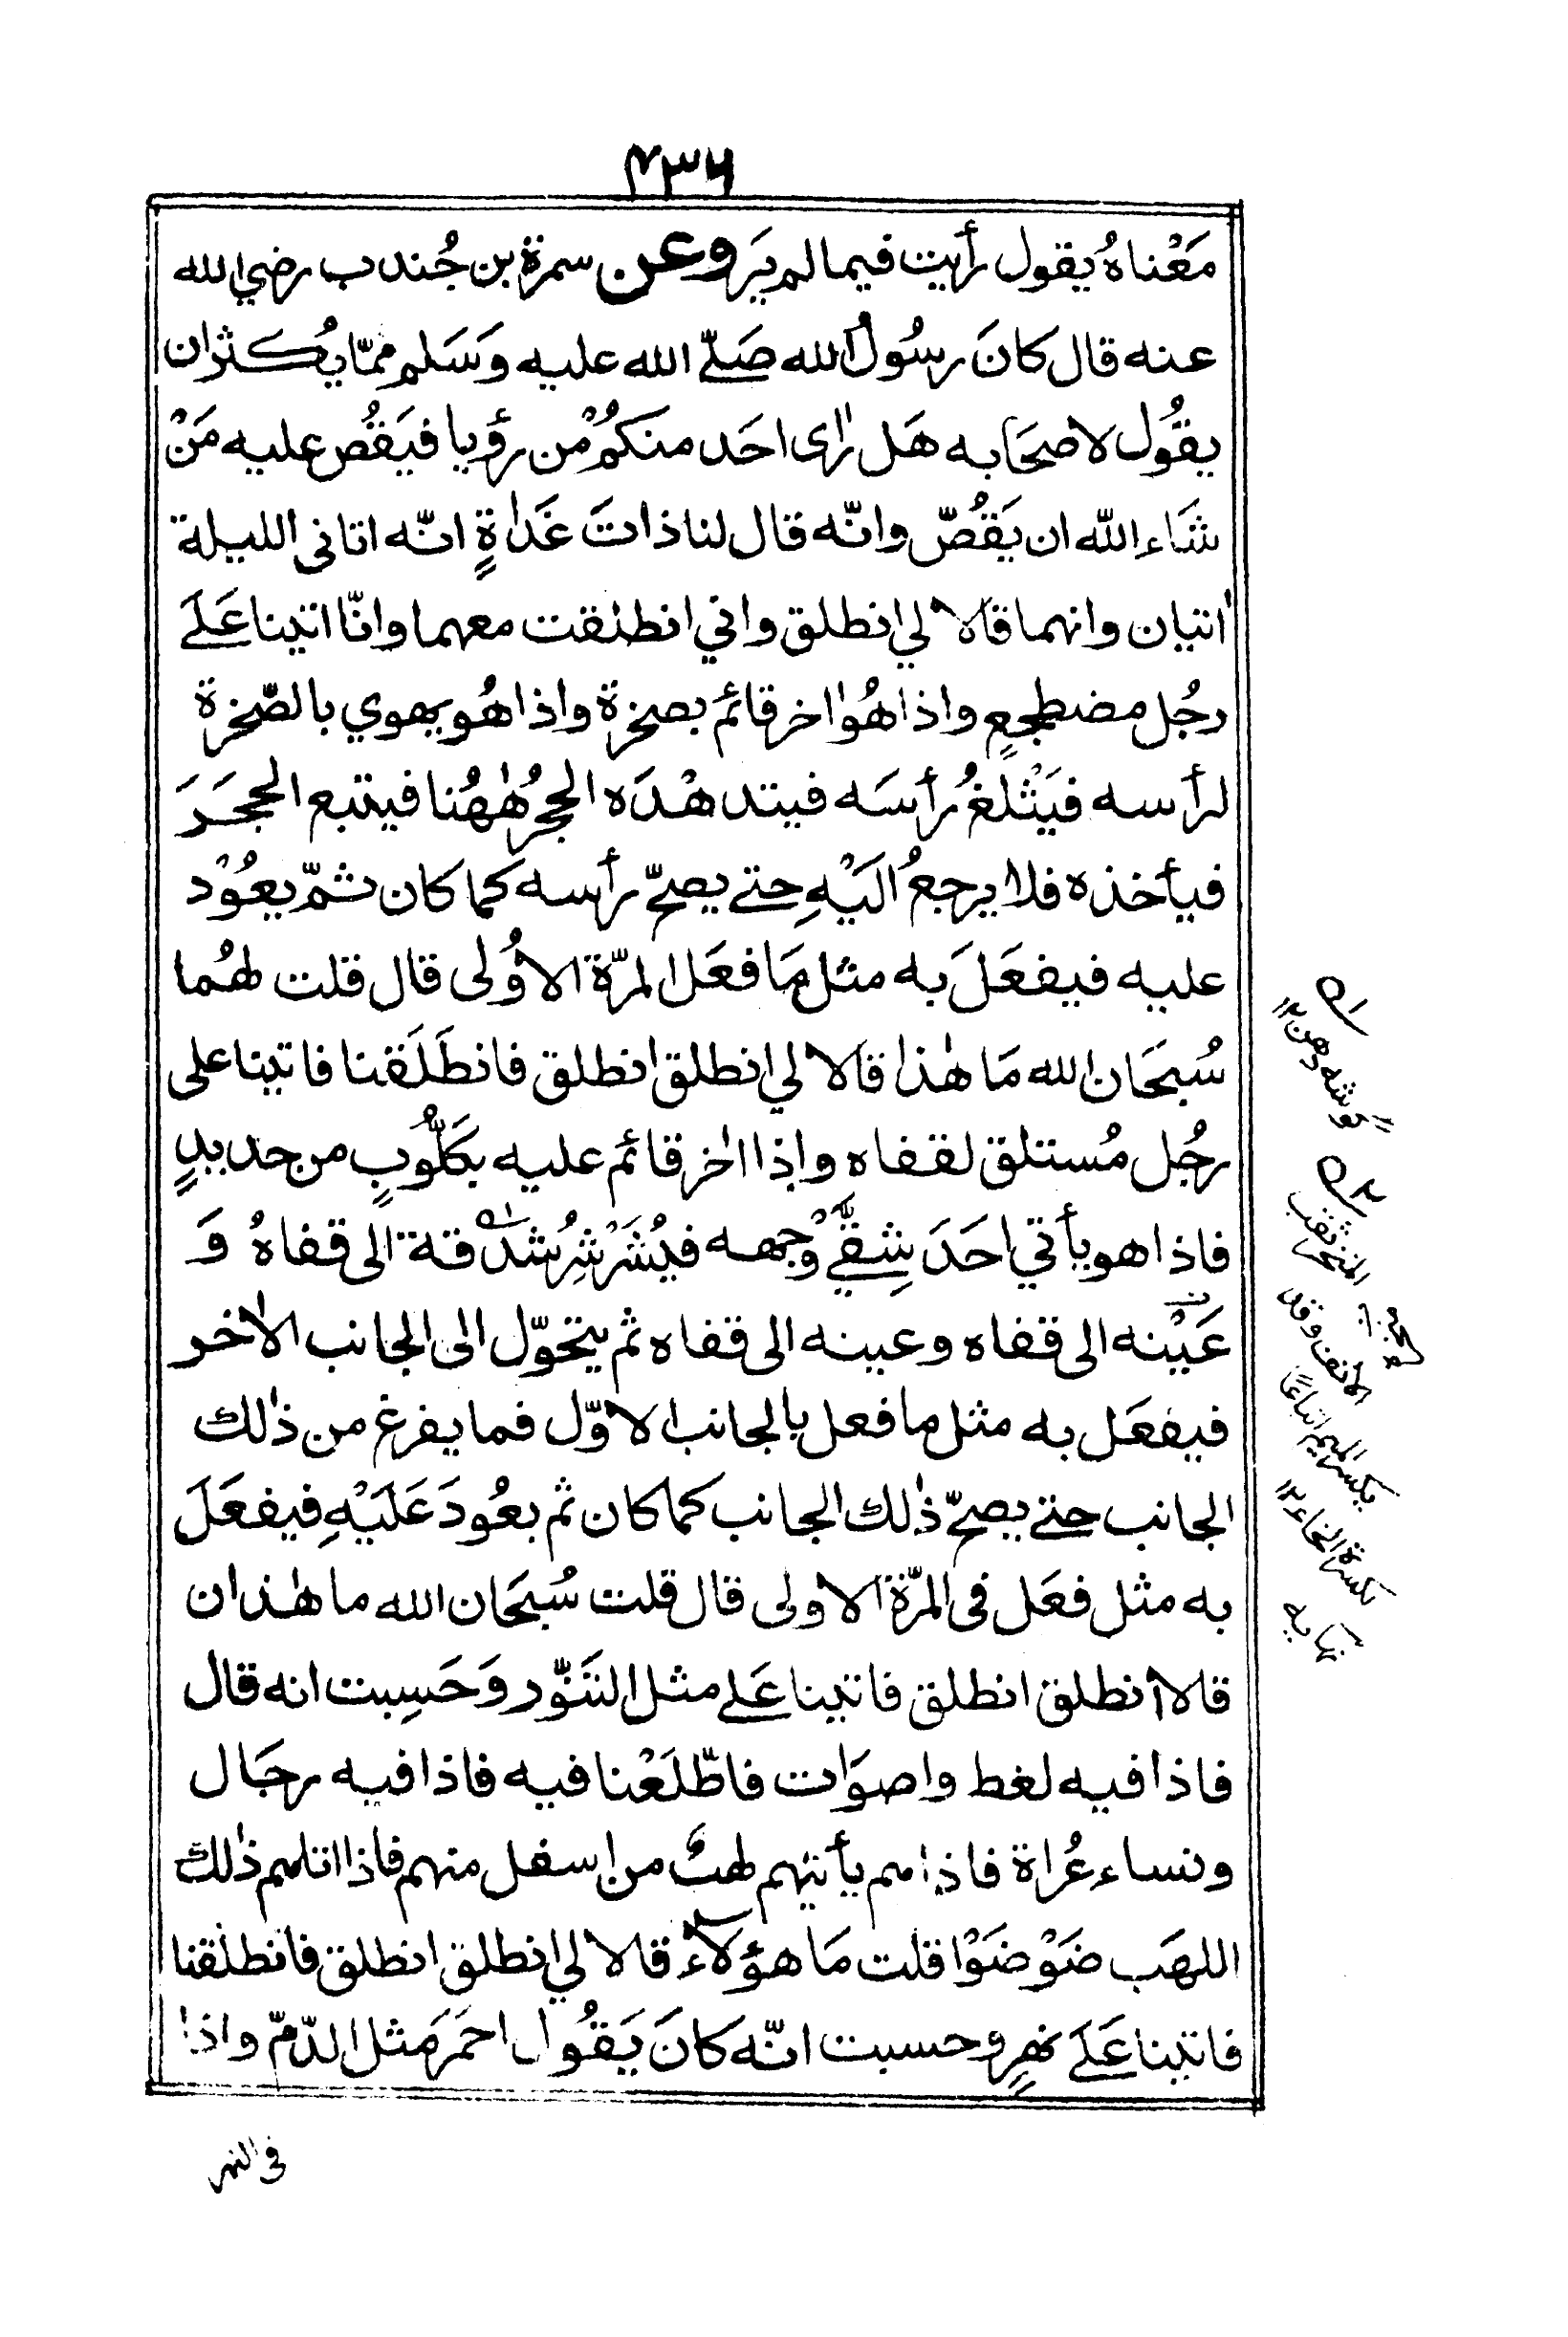 ۴۳۶
مَعْناهُ يقول رأيت فيما لم يَر وعن سمرة بن جُندب رضي الله
عنه قال كانَ رسُولُ الله صَلّى الله عليه وَسَلم ممّا يُكثران
يقُول لاصحَابه هَل رٰاى احَد منكُمْ من رؤيا فيَقُص عليه مَنْ
شَاء الله ان يَقُصّ وانّه قال لنا ذاتَ غَدٰاةٍ انّه اتاني الليلة
اٰتيان وانهما قالا لي انطلق واني انطلقت معهما وانّا اتينا عَلَے
رجُل مضطجعٍ واذا هُوٰ اخر قائم بصخرة واذا هُو يهوي بالصّخرة
لرأسه فيَثْلَغُ رأسَه فيتدهْدَه الحجرُ هٰهُنا فيتبع الحجَرَ
فيأخذه فلا يرجعُ الَيْهِ حتے يصحّ رأسه كما كان ثمّ يعُوْد
عليه فيفعَلَ به مثل مَا فعَل المرّة الاُولى قال قلت لهُما
سُبحَان الله مَا هٰذا قالا لي انطلق انطلق فانطَلَقنا فاتينا على
رجُل مُستلق لقفاه واذا اٰخر قائم عليه بكَلُّوبٍ من حديدٍ
فاذا هو يأتي احَدَ شِقَّيْ وَجهه فيُشَرْشِرُ شدْقة الى قفاهُ وَ
عَيْنه الى قفاه وعينه الى قفاه ثم يتحوّل الى الجانب الاٰخر
فيفعَل به مثل ما فعل بالجانب الاوّل فما يفرغ من ذٰلك
الجانب حتے يصحّ ذٰلك الجانب كما كان ثم يعُودَ عَلَيْهِ فيفعَلَ
به مثل فعَل فى المرّة الاولى قال قلت سُبحَان الله ما هٰذان
قالا انطلق انطلق فاتينا عَلے مثل التَنّوّر وَحَسِبت انه قال
فاذا فيه لغط واصوَات فاطّلَعْنا فيه فاذا فيه رجَال
ونساء عُراة فاذا هم يأتيهم لهبٌ من اسفل منهم فاذا اتاهم ذٰلك
اللهَب ضَوْضَوْا قلت مَا هؤلاء قالا لي انطلق انطلق فانطلقنا
فاتينا عَلَے نهرٍ وحسبت انّه كانَ يَقُول احمَر مَثل الدّمّ واذا
فى النهر
۱ه
گوشه دهن ۱۲
۲ه
المنخر ثقب
الانف وقد
يكسر الميم اتباعًا
لكسرة الخاء ۱۲
نهايه